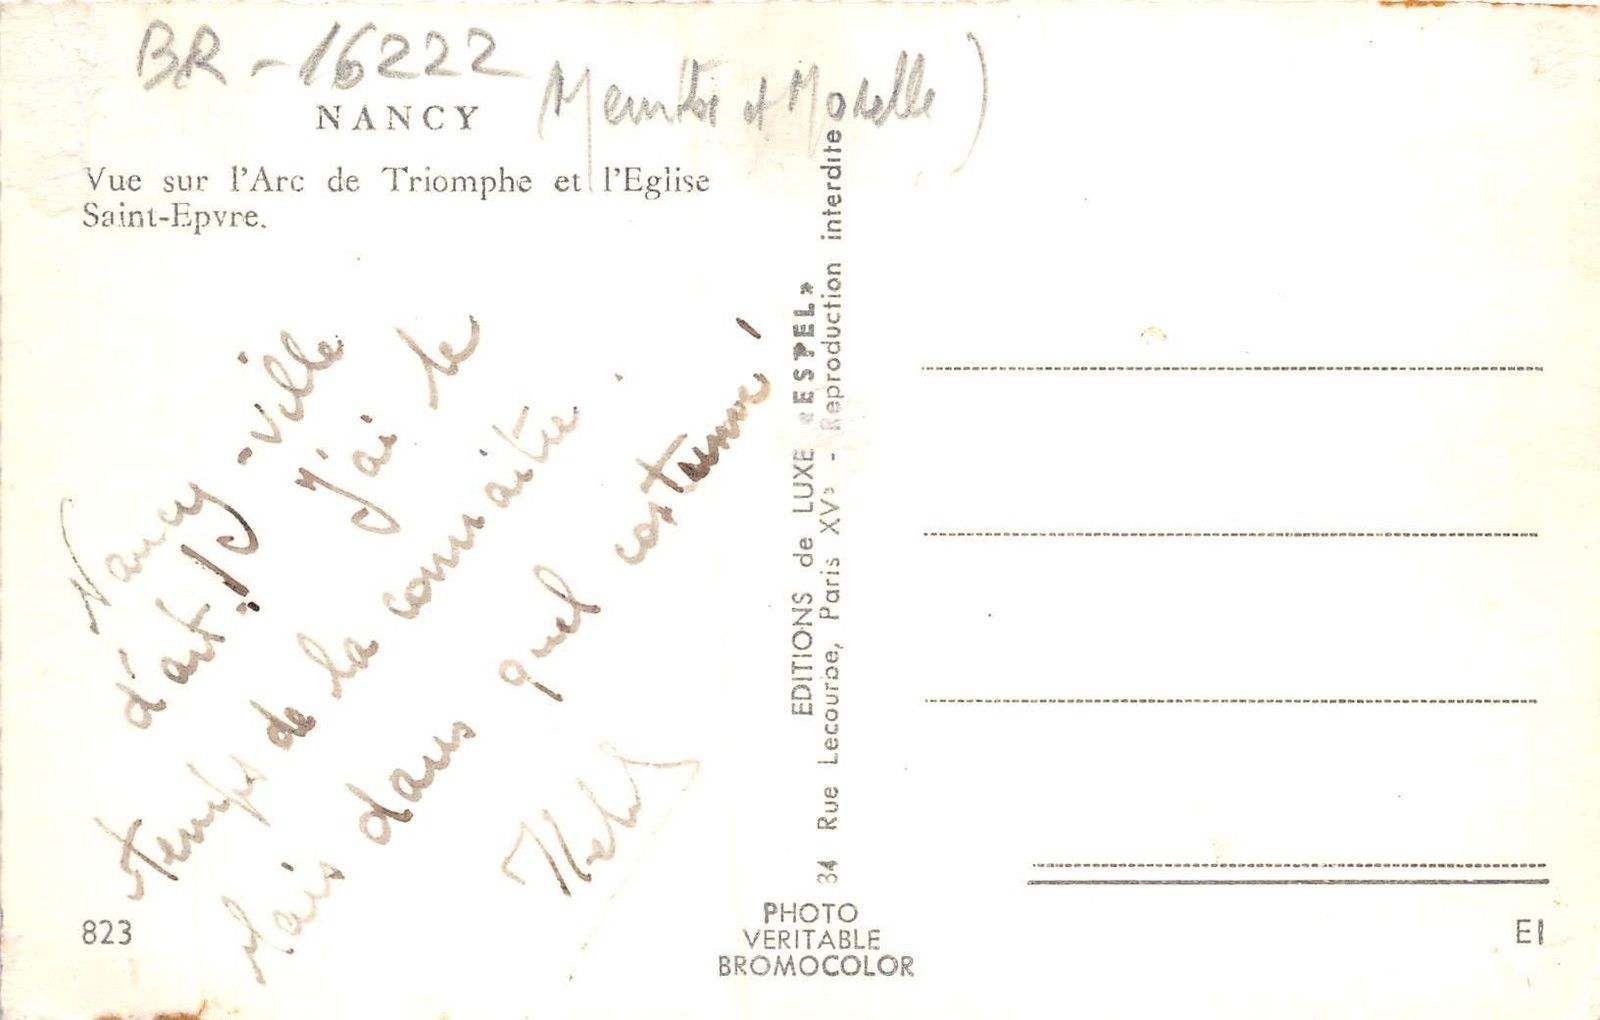 BR-16222
NANCY
(Meurthe et Moselle)
Vue sur l'Arc de Triomphe et l'Eglise
Saint-Epvre.
Nancy - Ville
d'art ! J'ai le
temps de la connaitre.
Mais dans quel costume !
823
EDITIONS de LUXE «ESTEL»
34 Rue Lecourbe, Paris XVe - Reproduction interdite
PHOTO
VERITABLE
BROMOCOLOR
EI